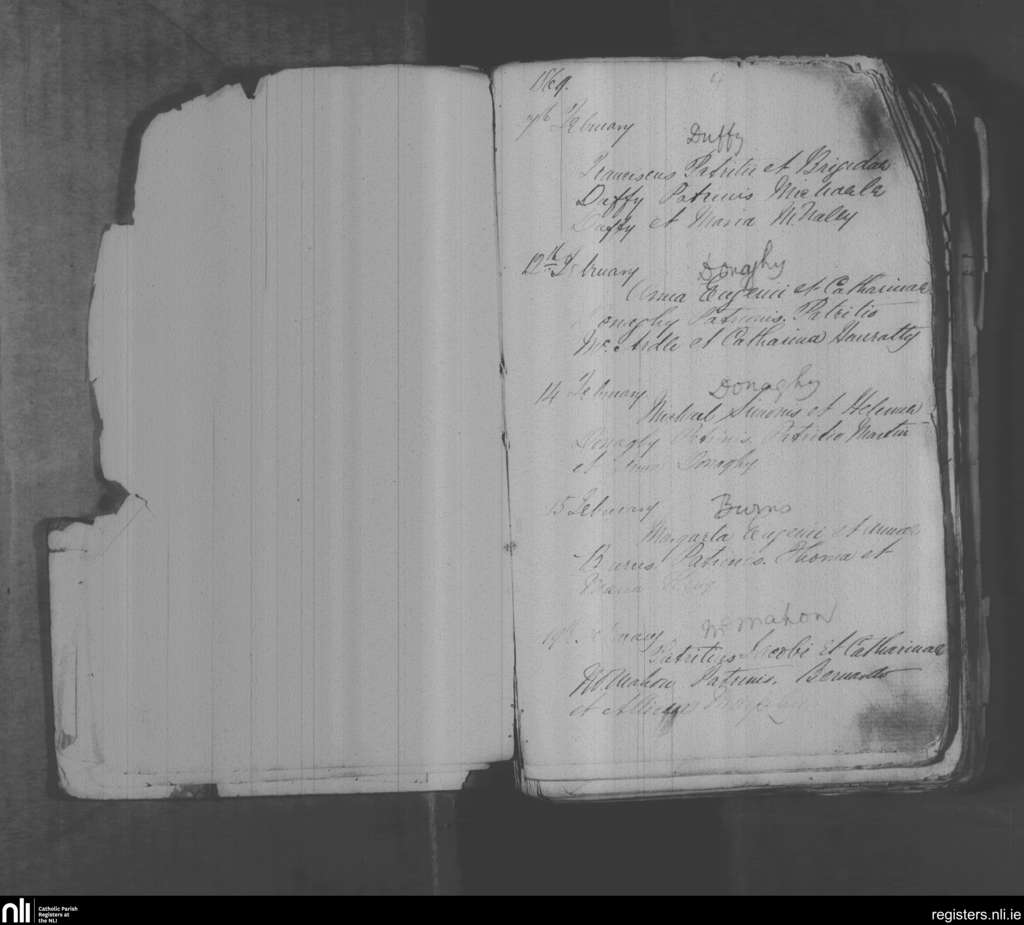 1869.
7th February
Duffy
Franciscus Patritii et Brigidae
Duffy Patrinis Michaele
Duffy et Maria McNaley
12th February Donaghy
Anna Eugenii et Catharinae
Donaghy Patrinis. Patritio
Mc. Ardle et Catharina Hanratty
14 February Donaghy
Michael Simonis et Helenae
Donaghy Patrinis. Patritio Martin
et Donaghy
15 February Burns
Margarta Eugenii et Annae
Burns Patrinis. Thoma et
Maria
19th. February McMahon
Patritius Jacobi et Catharinae
McMahon Patrinis. Bernardo
et
nli Catholic Parish
Registers at
the NLI
registers.nli.ie